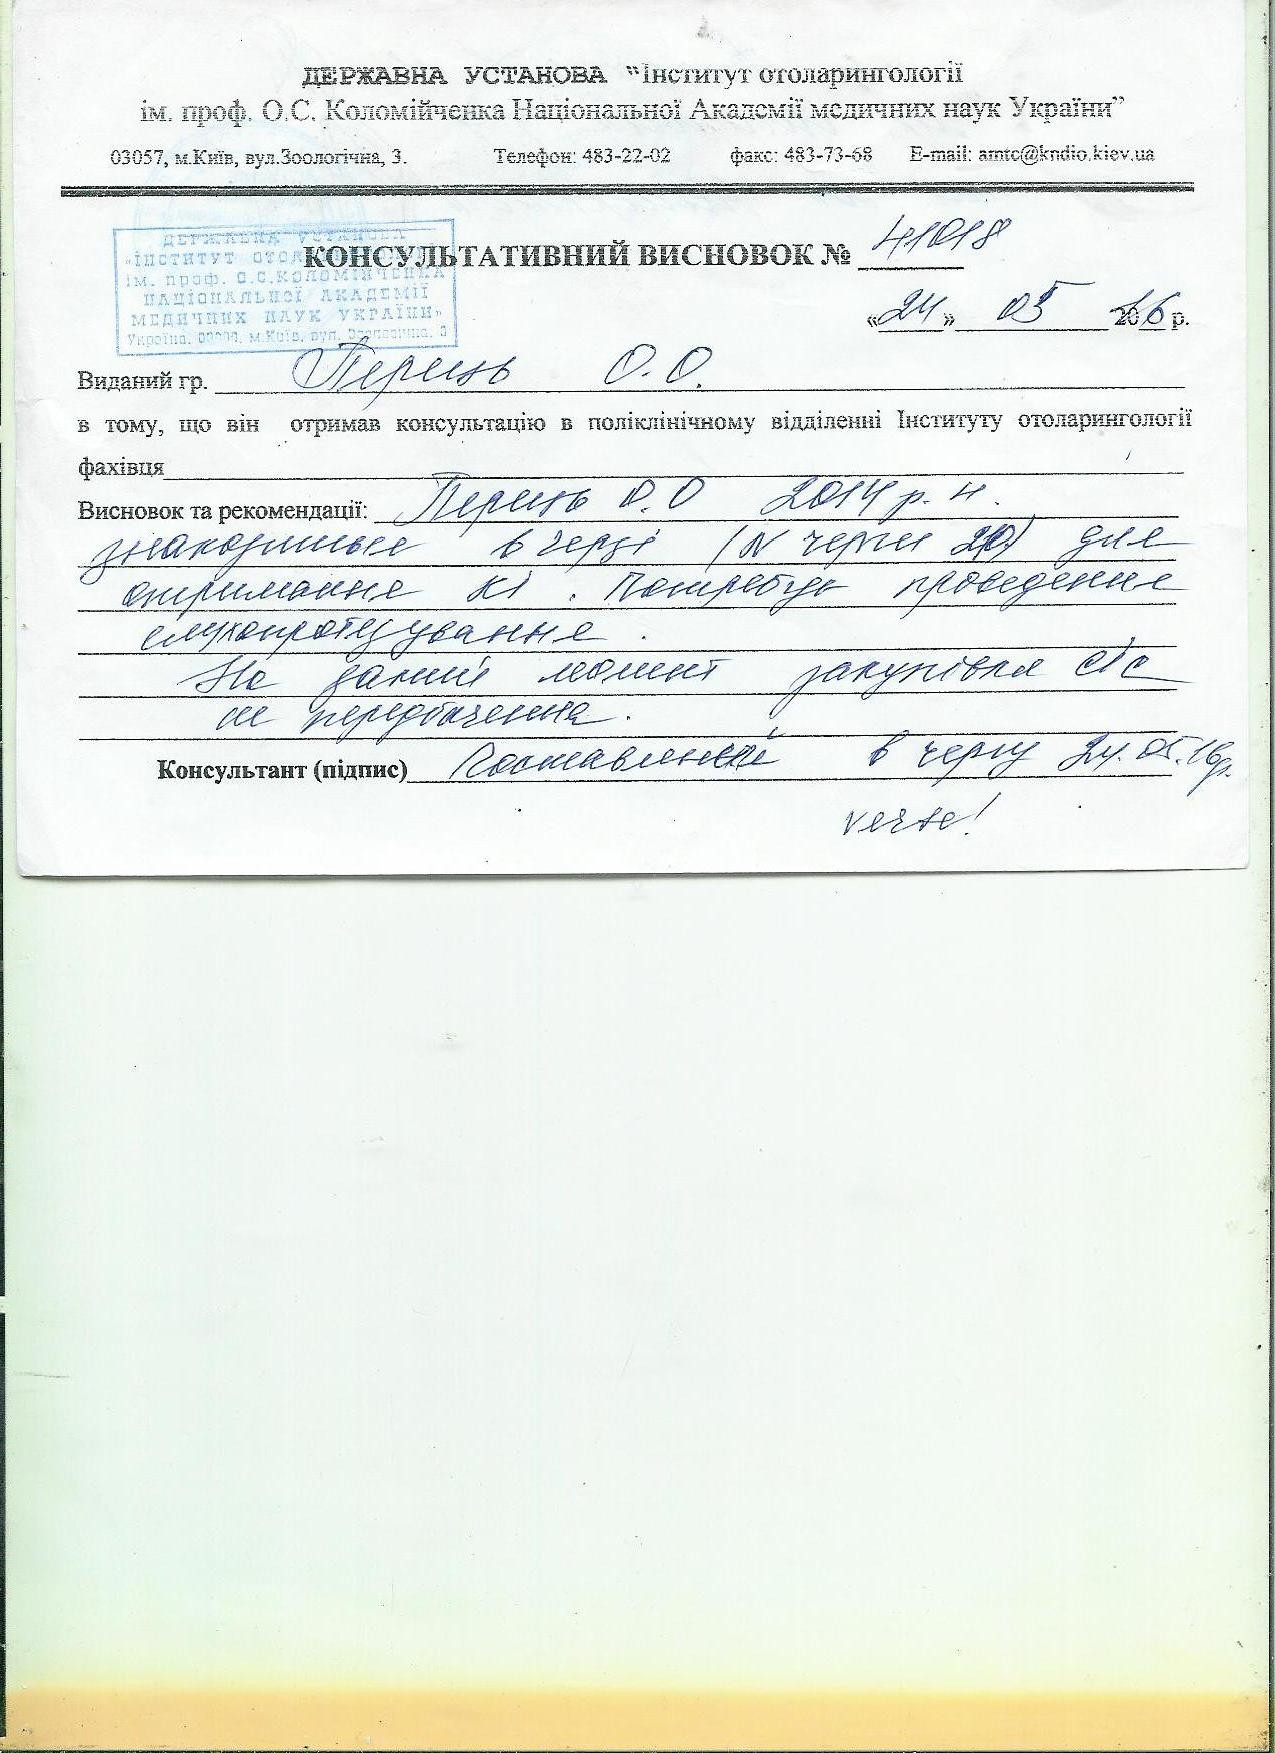 ДЕРЖАВНА УСТАНОВА “Інститут отоларингології
ім. проф. О.С. Коломійченка Національної Академії медичних наук України”
03057, м.Київ, вул.Зоологічна, 3. Телефон: 483-22-02 факс: 483-73-68 E-mail: amtc@kndio.kiev.ua
ДЕРЖАВНА УСТАНОВА
«ІНСТИТУТ
ім. проф. О.С.КОЛОМІЙЧЕНКА
НАЦІОНАЛЬНОЇ АКАДЕМІЇ
МЕДИЧНИХ НАУК УКРАЇНИ»
Україна, м.Київ, вул. Зоологічна, 3
КОНСУЛЬТАТИВНИЙ ВИСНОВОК № 41018
«24» 05 2016 р.
Виданий гр. О.О.
в тому, що він отримав консультацію в поліклінічному відділенні Інституту отоларингології
фахівця
Висновок та рекомендації: О.О 2014 р.н.
в черзі (N черги 20) для
отримання КІ. Потребує проведення
слухопротезування.
На даний момент закупівля
не передбачена.
Консультант (підпис) Поставлений в чергу 24.05.16р.
verte!